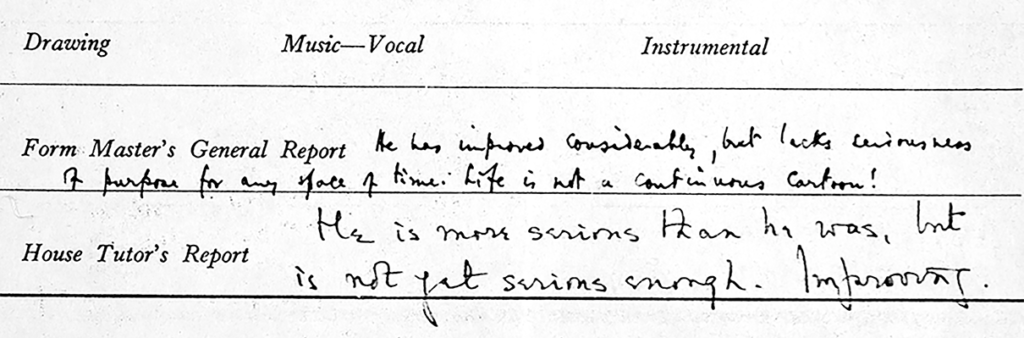 Drawing Music—Vocal Instrumental
Form Master's General Report He has improved considerably, but lacks seriousness
of purpose for any space of time. Life is not a continuous cartoon!
He is more serious than he was, but
House Tutor's Report
is not yet serious enough. Improving.